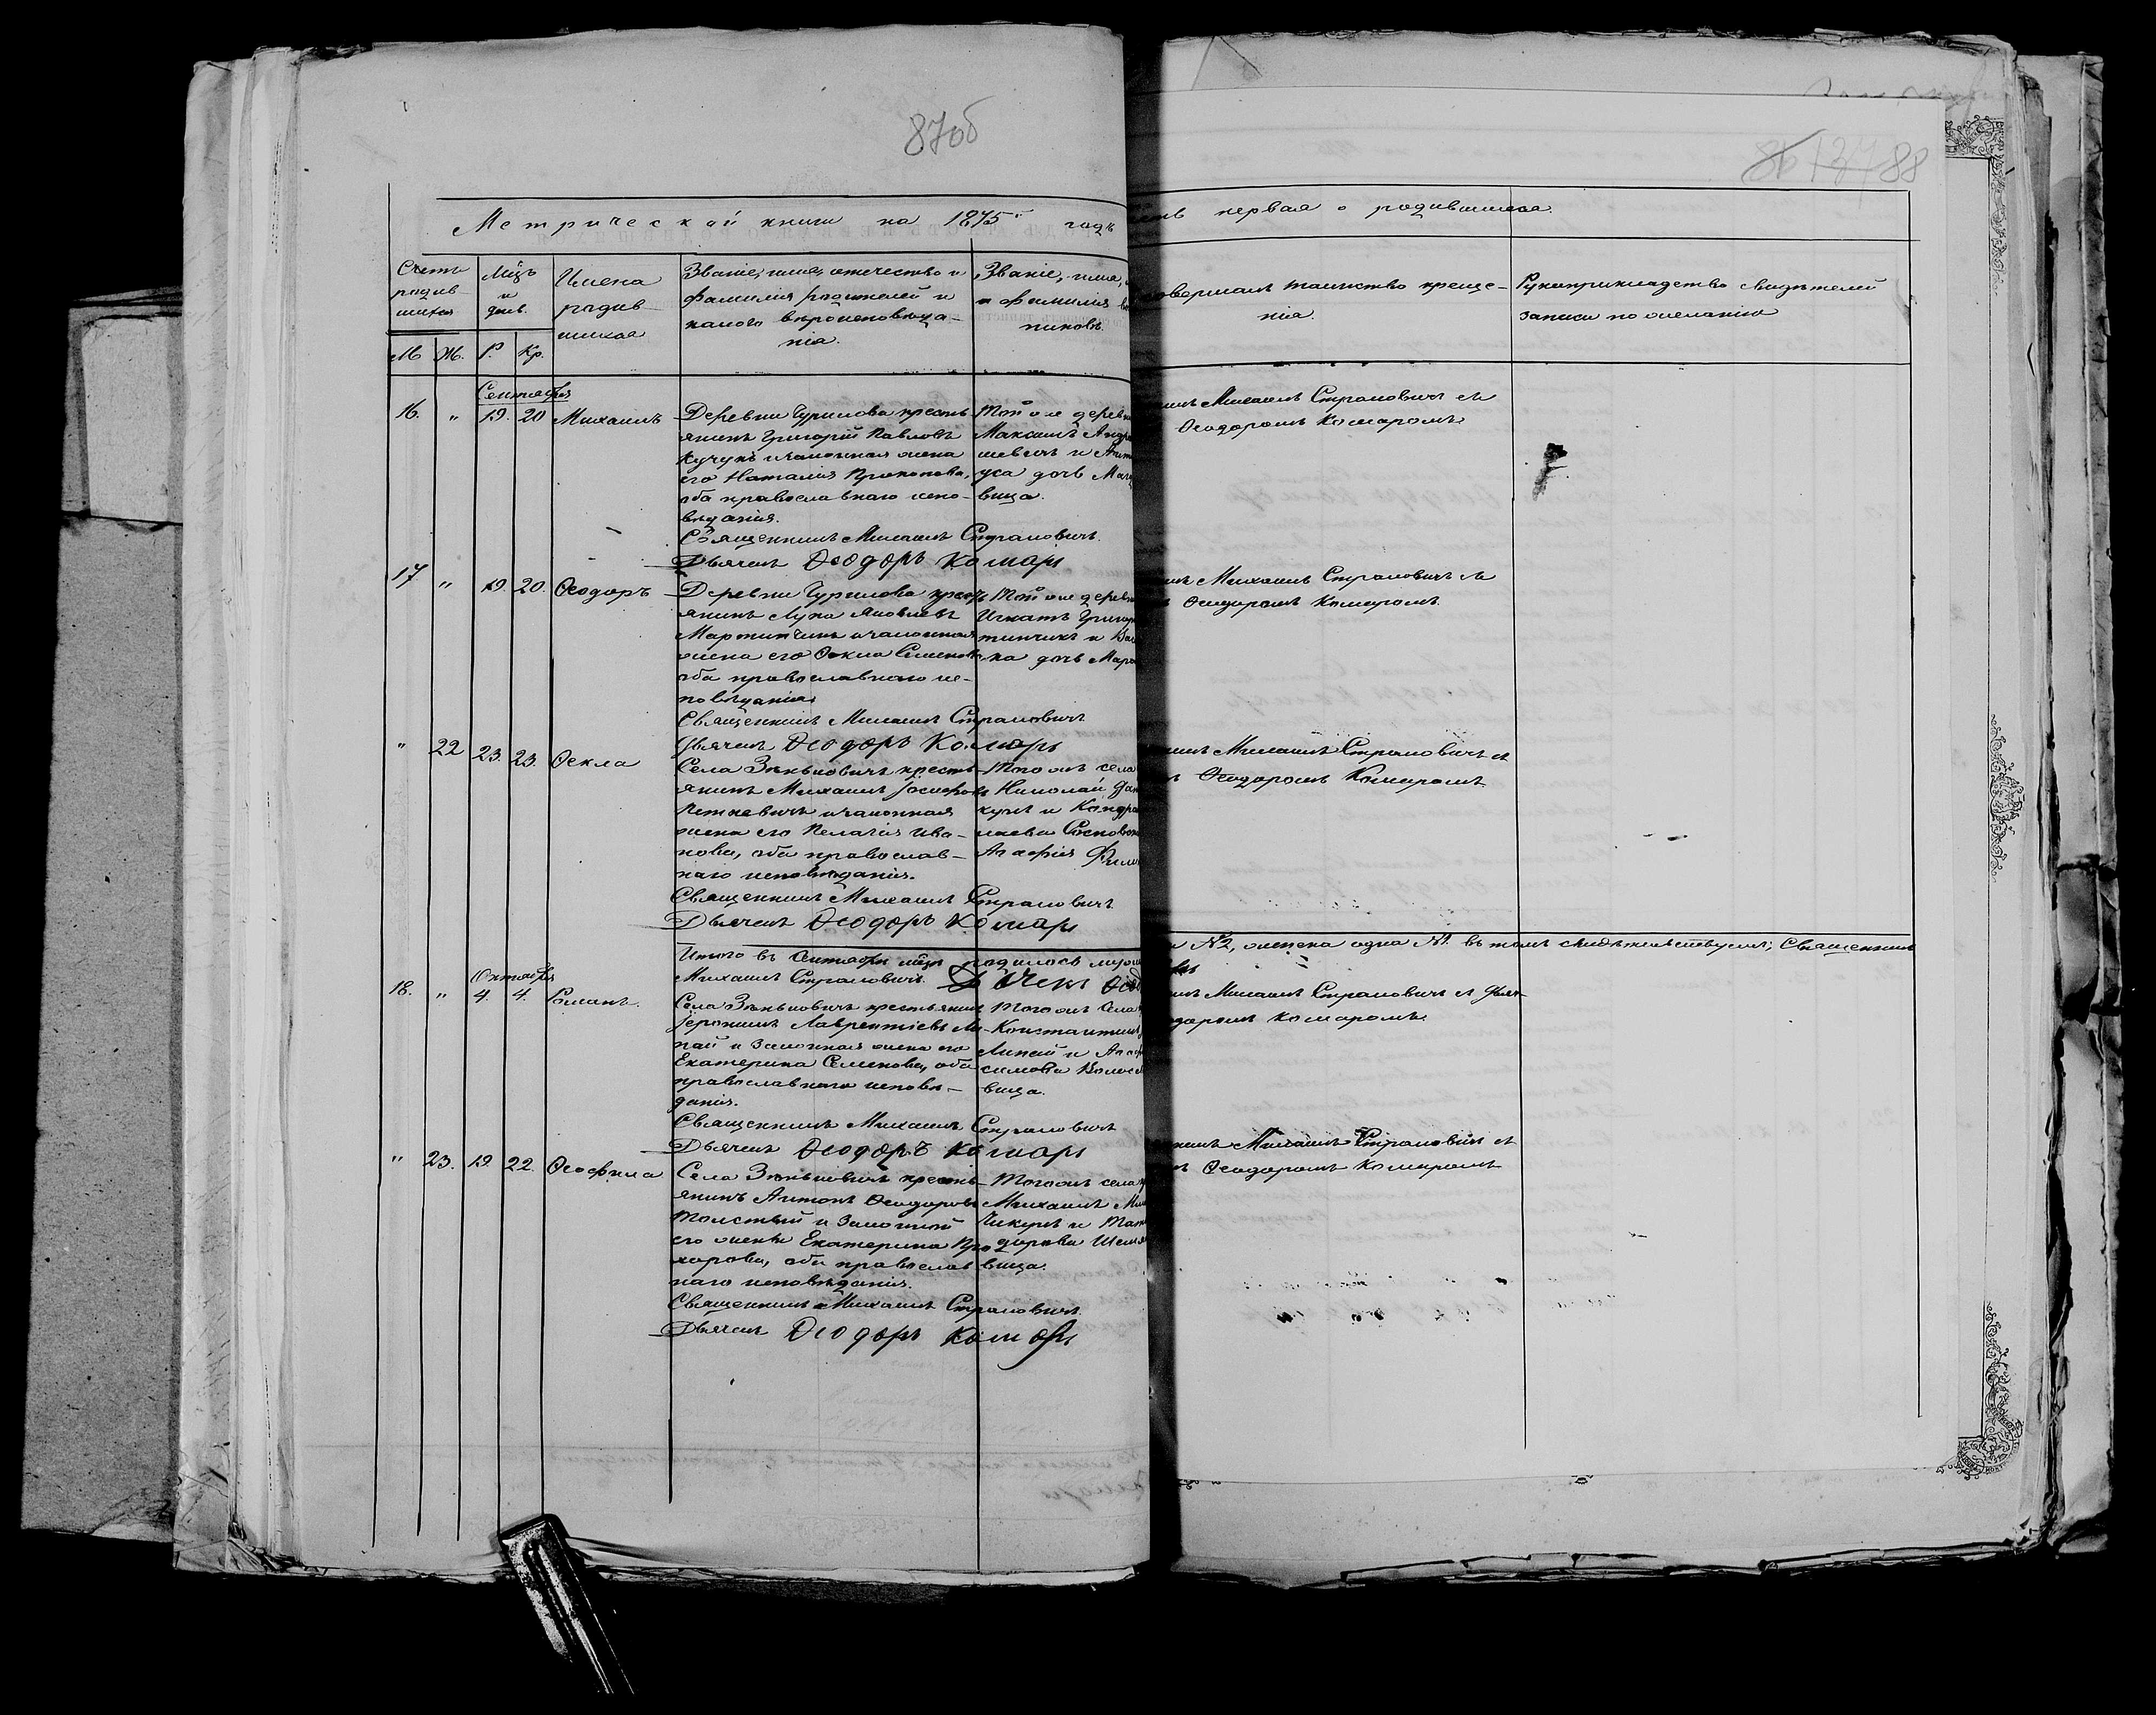 87об
86 137 88
Метрической книги на 1875й годъ
первая о родившихся.
Счетъ родив-шихся
Мцъ и день.
Имена родив-шихся
Званіе, имя, отечество и фамилія родителей и какого вѣроисповѣда-нія.
Званіе, имя,
и фамилія
никовъ.
совершалъ таинство креще-нія.
Рукоприкладство свидѣтелей записи по желанію
М Ж. Р. Кр.
Сентября
16. " 19. 20 Михаилъ
Деревни Чурилова кресть-
янинъ Григорій Павловъ
Кучукъ и законная жена
его Наталія Прокопова,
оба православнаго испо-
вѣданія.
Священникъ Михаилъ Страловичъ.
Дьячекъ Ѳеодоръ Комаръ
Той же дерев
Максимъ
шевичъ и
уса дочь
вища.
Михаилъ Страловичъ съ
Ѳеодоромъ Комаромъ.
17 " 19. 20. Ѳеодоръ
Деревни Чурилова кресть
янинъ Лука Яковлевъ
Мартинчикъ и законная
жена его Ѳекла Семенова,
оба православнаго ис-
повѣданія
Священникъ Михаилъ Страловичъ
Дьячекъ Ѳеодоръ Комаръ
Той же дерев
Игнатъ Григор
тинчикъ и
ка дочь Мар
Михаилъ Страловичъ съ
Ѳеодоромъ Комаромъ.
" 22 23. 23. Ѳекла
Села Зѣньковичъ кресть-
янинъ Михаилъ Іосифовъ
Петкевичъ и законная
жена его Пелагія Ива-
нова, оба православ-
наго исповѣданія.
Священникъ Михаилъ Страловичъ
Дьячекъ Ѳеодоръ Комаръ
Того же села
Николай
куль и Кондра
лаева
Агафія
Михаилъ Страловичъ съ
Ѳеодоромъ Комаромъ
Итого въ Сентябрѣ мцѣ родилось
№2, женска одна №1. въ томъ свидѣтельствуемъ; Священникъ
Михаилъ Страловичъ. Дьячекъ
Октября
18. " 4. 4. Романъ.
Села Зѣньковичъ крестьянинъ
Іеронимъ Лаврентіевъ Ли-
пай и законная жена его
Екатерина Семенова, оба
православнаго исповѣ-
данія.
Священникъ Михаилъ Страловичъ
Дьячекъ Ѳеодоръ Комаръ
Того же села
Константинъ
Липай и
симова
вища.
Михаилъ Страловичъ съ Дьяч-
доромъ Комаромъ.
" 23. 19. 22. Ѳеофила
Села Зѣньковичъ кресть-
янинъ Антонъ Ѳеодоровъ
Толстый и законной
его жены Екатерина Про
хорова, оба православ
наго исповѣданія.
Священникъ Михаилъ Страловичъ.
Дьячекъ Ѳеодоръ Комаръ
Того же села
Михаилъ
Чикуль и
дорова
вища.
Михаилъ Страловичъ съ
Ѳеодоромъ Комаромъ